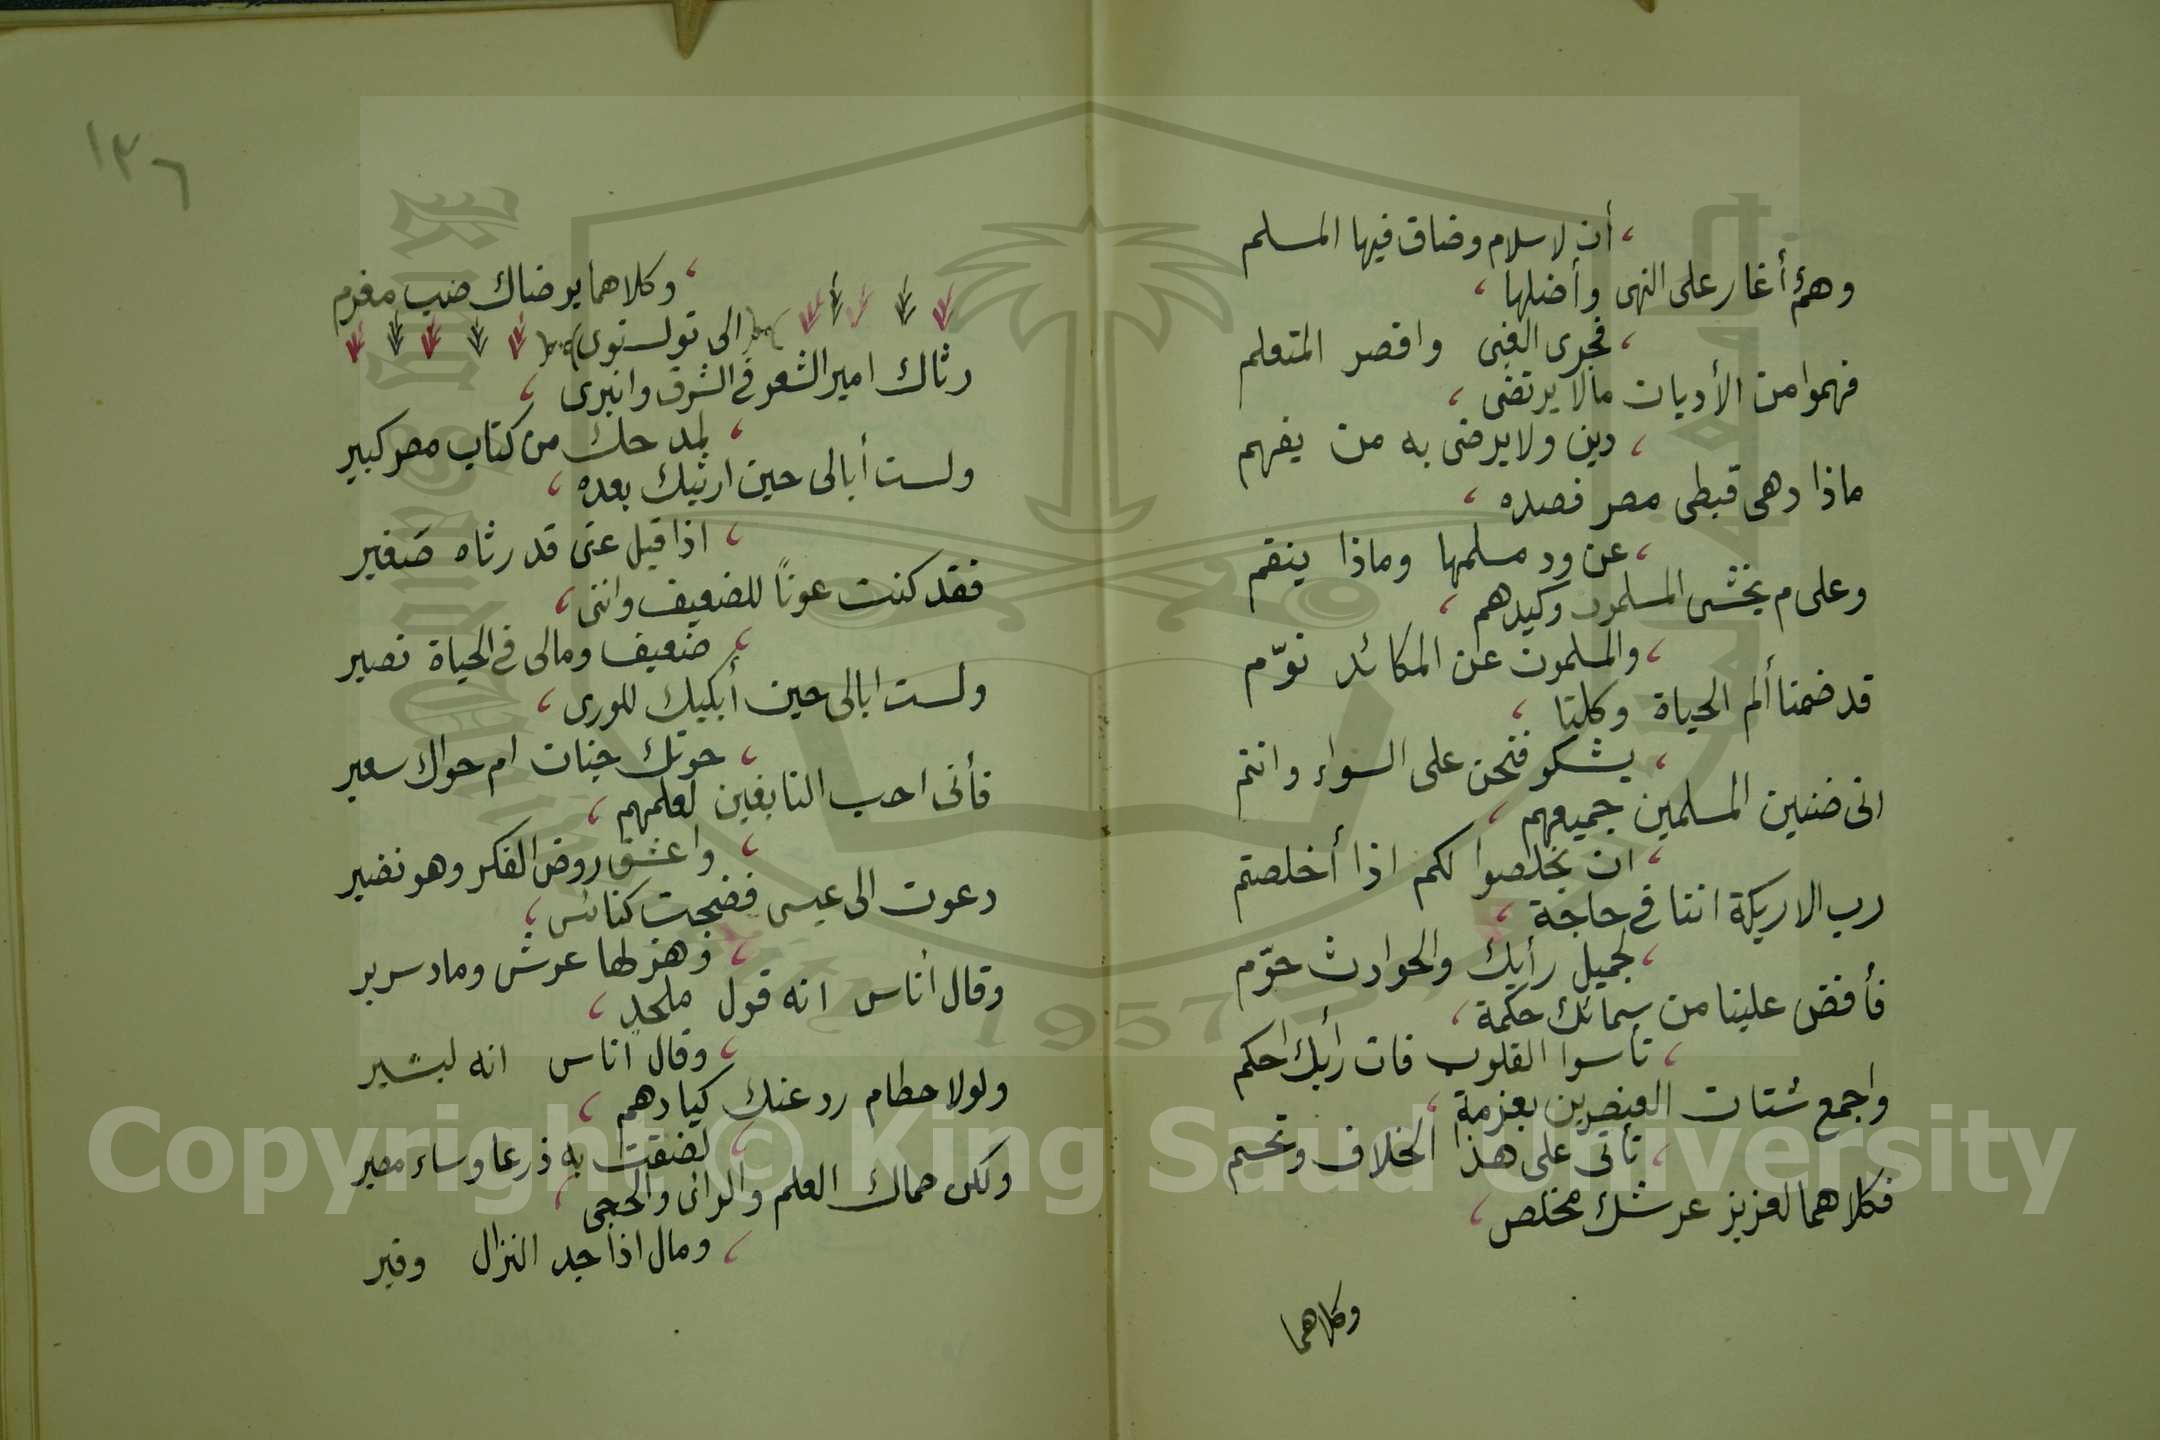 أن لا سلام وضاق فيها المسلم
وهم أغار على النهى وأضلها
فجرى الغبى واقصر المتعلم
فهموا من الأديان مالا يرتضى
دين ولا يرضى به من يفهم
ماذا دهى قبطى مصر فصده
عن ود مسلمها وماذا ينقم
وعلى م يخشى المسلمون وكيدهم
والمسلمون عن المكائد نوّم
قد ضمنا ألم الحياة وكلنا
يشكو فنحن على السواء وانتم
انى ضنين المسلمين جميعهم
ان يخلصوا لكم اذا أخلصتم
رب الاريكة اننا فى حاجة
لجميل رأيك والحوادث حوّم
فأفض علينا من سمائك حكمة
تأسوا القلوب فان رأيك احكم
واجمع شتات العنصرين بعزمة
تأتى على هذا الخلاف وتحسم
فكلاهما لعزيز عرشك مخلص
وكلاهما
١٣٦
وكلاهما يرضاك صب مغرم
الى تولستوى
رثاك امير الشعر فى الشرق وانبرى
لمدحك من كتاب مصر كبير
ولست أبالى حين ارثيك بعده
اذا قيل عنى قد رثاه صغير
فقد كنت عونًا للضعيف واننى
ضعيف ومالى فى الحياة نصير
ولست ابالى حين أبكيك للورى
حوتك جنات ام حواك سعير
فأنى احب النابغين لعلمهم
واعشق روض الفكر وهو نضير
دعوت الى عيسى فضجت كنائس
وهز لها عرش وماد سرير
وقال أناس انه قول ملحد
وقال اناس انه لبشير
ولولا حطام رد عنك كيادهم
لضقت به ذرعا وساء مصير
ولكن حماك العلم والرأى والحجى
ومال اذا جد النزال وفير
Copyright © King Saud University
King Saud University
1957